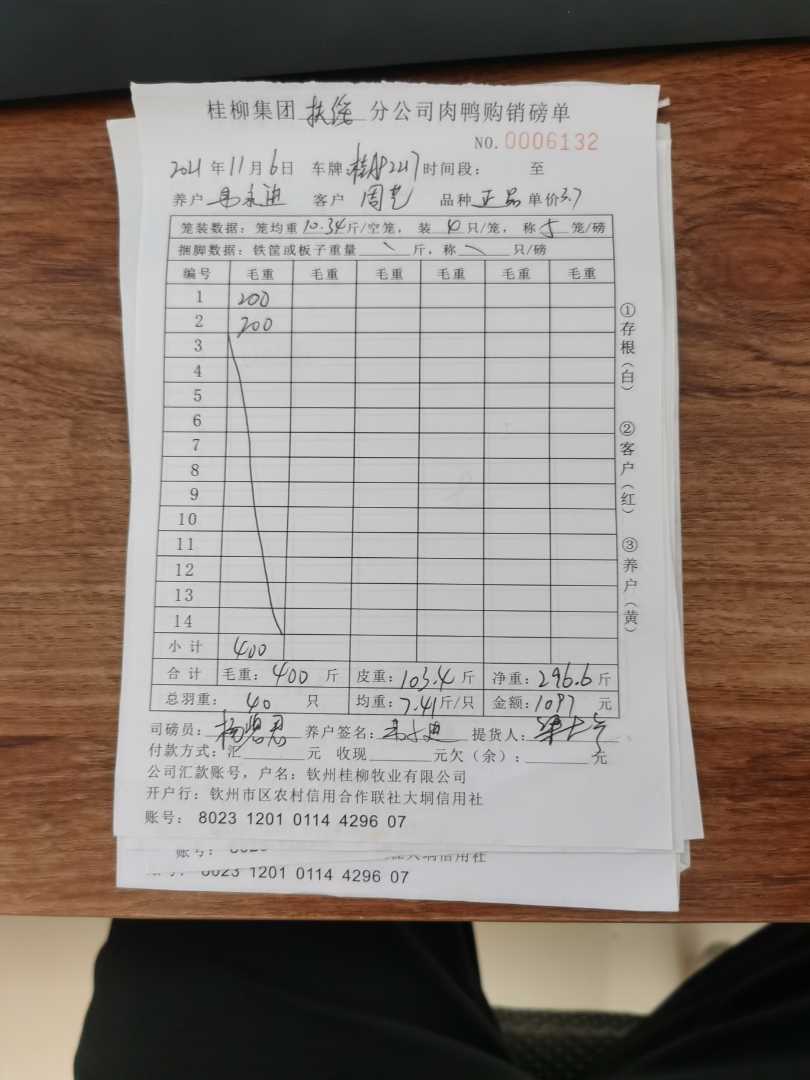 桂柳集团扶绥分公司肉鸭购销磅单
NO.0006132
2021年11月6日 车牌：桂 2217 时间段： 至
养户 客户 周 品种 正品 单价3.7
笼装数据：笼均重10.34斤/空笼，装 10 只/笼，称 5 笼/磅
捆脚数据：铁筐或板子重量 \ 斤，称 \ 只/磅
编号 毛重 毛重 毛重 毛重 毛重 毛重
1 200
2 200
3
4
5
6
7
8
9
10
11
12
13
14
小计 400
合计 毛重：400 斤 皮重：103.4 斤 净重：296.6 斤
总羽重： 40 只 均重：7.41斤/只 金额：1097 元
司磅员：杨碧君 养户签名： 提货人：
付款方式：汇 元 收现 元欠（余）： 元
公司汇款账号，户名：钦州桂柳牧业有限公司
开户行：钦州市区农村信用合作联社大垌信用社
账号： 8023 1201 0114 4296 07
①存根（白） ②客户（红） ③养户（黄）
账号：
大垌信用社
8023 1201 0114 4296 07